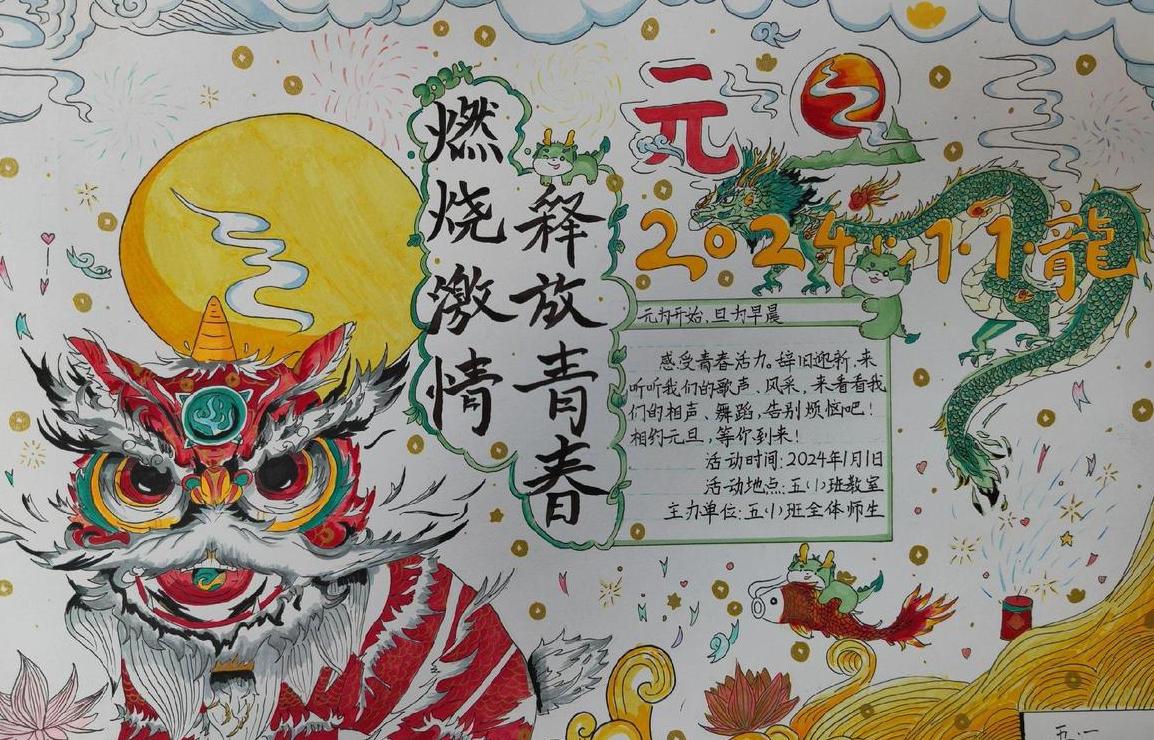 2024
燃烧激情
释放青春
元旦
2024.1.1.龍
元为开始,旦为早晨
感受青春活力,辞旧迎新,来
听听我们的歌声、风采,来看看我
们的相声、舞蹈,告别烦恼吧!
相约元旦,等你到来!
活动时间:2024年1月1日
活动地点:五(1)班教室
主办单位:五(1)班全体师生
五.一